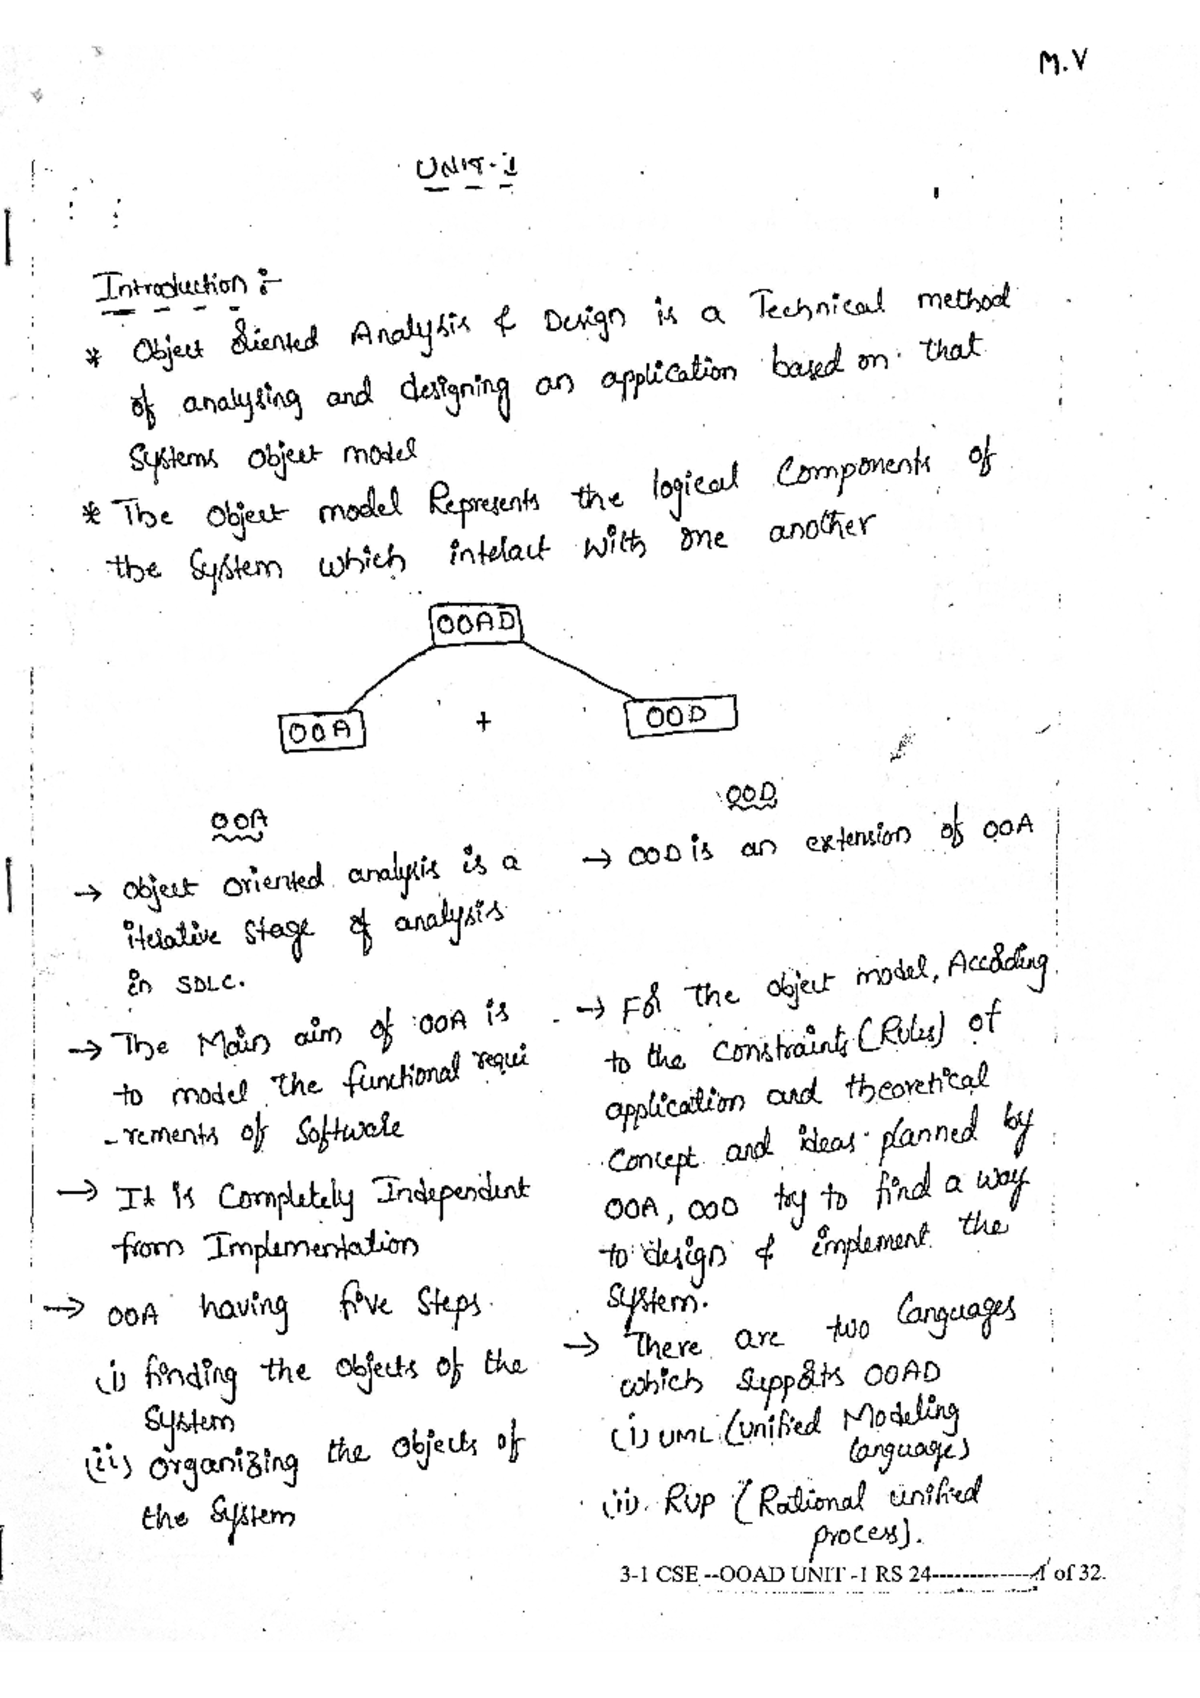 M.V
UNIT-1
Introduction :-
* Object Oriented Analysis & Design is a Technical method
of analysing and designing an application based on that
Systems Object model
* The Object model Represents the logical Components of
the System which interact with one another
OOAD
OOA + OOD
OOA
→ Object oriented analysis is a
iterative stage of analysis
in SDLC.
→ The Main aim of OOA is
to model the functional requi
-rements of Software
→ It is Completely Independent
from Implementation
→ OOA having five Steps.
(i) finding the Objects of the
System
(ii) organizing the Objects of
the System
OOD
→ OOD is an extension of OOA
→ For the object model, According
to the constraints (Rules) of
application and theoretical
Concept and ideas planned by
OOA, OOD try to find a way
to design & implement the
System.
→ There are two languages
which supports OOAD
(i) UML (unified Modeling
languages)
(ii). RUP (Rational unified
process).
3-1 CSE --OOAD UNIT -1 RS 24--------------1 of 32.